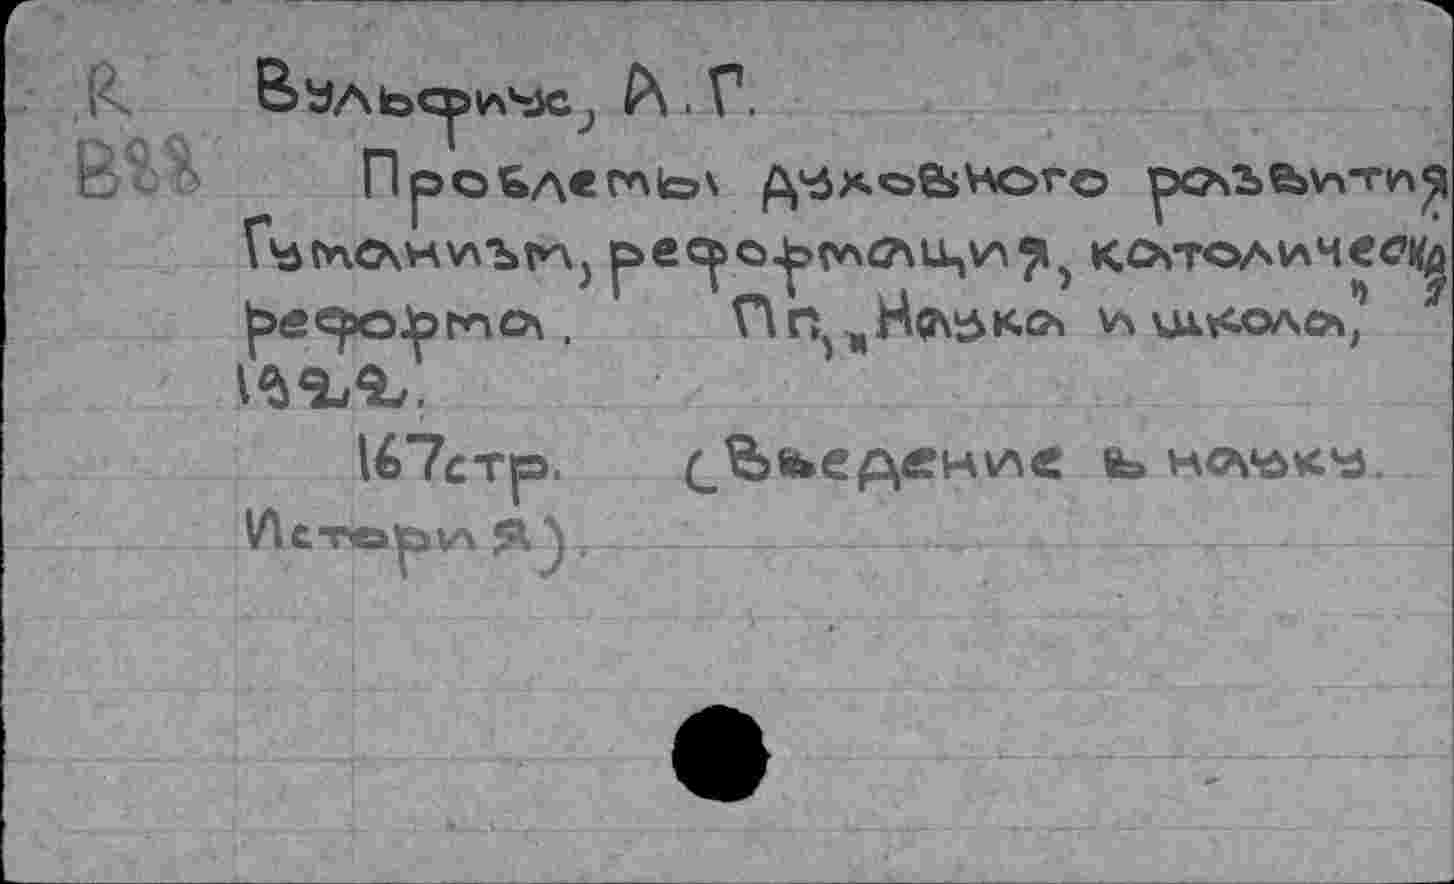 R Вульфиус, А. Г.
В88 Проблемы духовного развития
Гуманизм, реформация, католическая
реформа. Пг., „Наука и школа",
1922.
167 стр. (Введение в науку.
История).